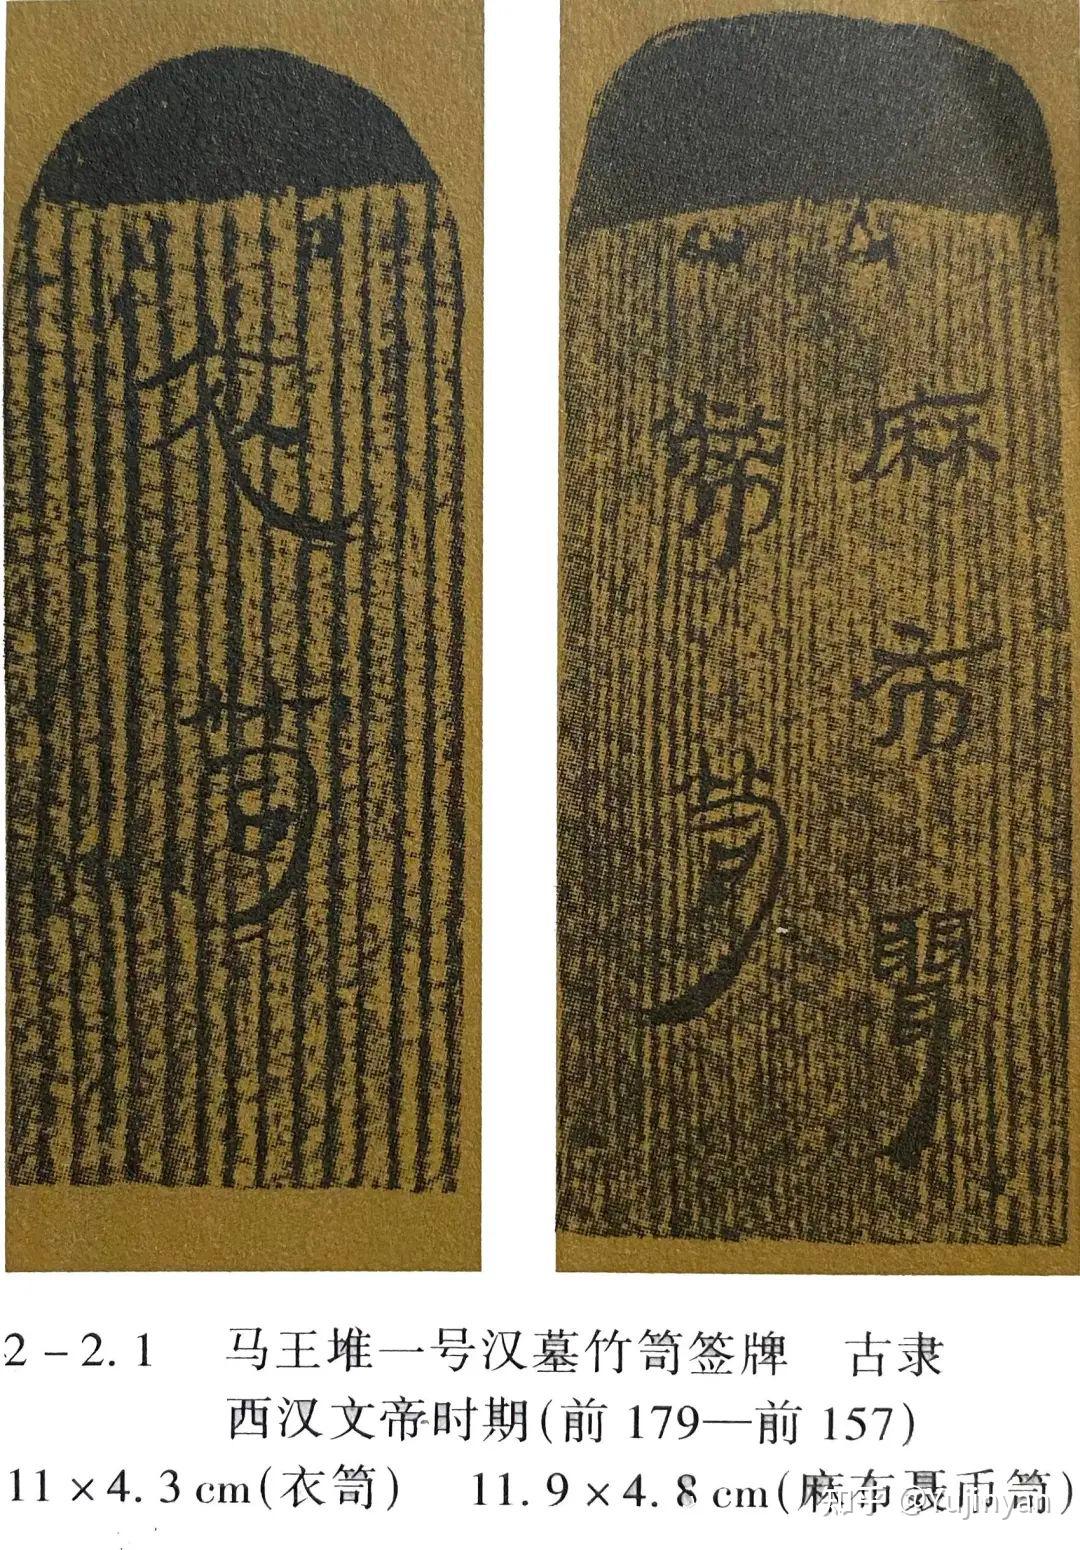 衣笥
麻布聶
幣笥
2-2.1 马王堆一号汉墓竹笥签牌 古隶
西汉文帝时期(前179—前157)
11×4.3cm(衣笥) 11.9×4.8cm(麻布聂币笥)
知乎 @Yujinyan